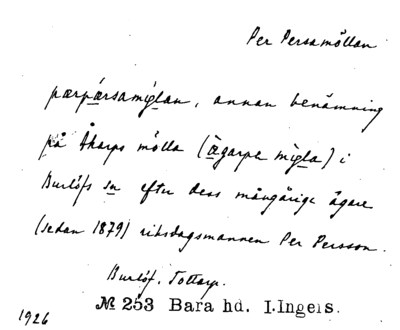 Per Persamöllan
pærpá̱rsamíg̱lan, annan benämning
på Åkarps mölla (à̱garps mìg̱la) i
Burlöfs s̱ṉ efter dess mångårige ägare
(sedan 1879) riksdagsmannen Per Persson.
Burlöf. Tottarp.
№ 253 Bara hd. I.Ingers.
1926